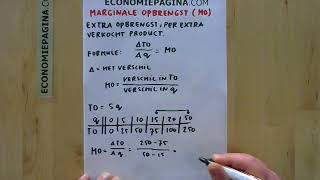 ECONOMIEPAGINA.COM
ECONOMIEPAGINA.COM
MARGINALE OPBRENGST (MO)
EXTRA OPBRENGST, PER EXTRA
VERKOCHT PRODUCT.
FORMULE: ΔTO / Δq = MO
Δ = HET VERSCHIL
MO = VERSCHIL IN TO / VERSCHIL IN q
TO = 5q
q | 0 | 5 | 10 | 15 | 20 | 50
TO | 0 | 25 | 50 | 75 | 100 | 250
MO = ΔTO / Δq = 250 - 75 / 50 - 15 =